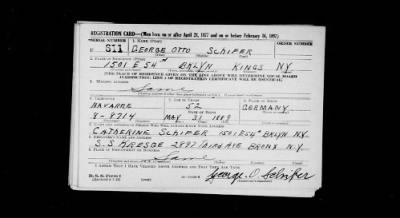 REGISTRATION CARD—(Men born on or after April 28, 1877 and on or before February 16, 1897)
SERIAL NUMBER 1. NAME (Print) ORDER NUMBER
U 811 GEORGE OTTO SCHIFER
2. PLACE OF RESIDENCE (Print)
1501 E 54th BKLYN KINGS N.Y.
[THE PLACE OF RESIDENCE GIVEN ON THE LINE ABOVE WILL DETERMINE LOCAL BOARD
JURISDICTION; LINE 2 OF REGISTRATION CERTIFICATE WILL BE IDENTICAL]
3. MAILING ADDRESS
Same
4. TELEPHONE 5. AGE IN YEARS 6. PLACE OF BIRTH
NAVARRE 52
8-8714 MAY 31 1889 GERMANY
7. NAME AND ADDRESS OF PERSON WHO WILL ALWAYS KNOW YOUR ADDRESS
CATHERINE SCHIFER 1501 E 54th BKLYN N.Y.
8. EMPLOYER'S NAME AND ADDRESS
S.S. KRESGE 2897 THIRD AVE BRONX N.Y.
9. PLACE OF EMPLOYMENT OR BUSINESS
Same
I AFFIRM THAT I HAVE VERIFIED ABOVE ANSWERS AND THAT THEY ARE TRUE.
D. S. S. Form 1
George O. Schifer